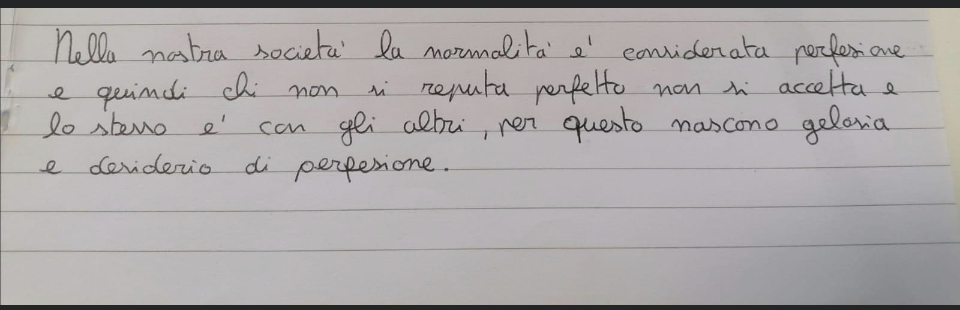 Nella nostra società la normalità è considerata perfesione
e quindi chi non si reputa perfetto non si accetta e
lo stesso è con gli altri, per questo nascono gelosia
e desiderio di perfesione.